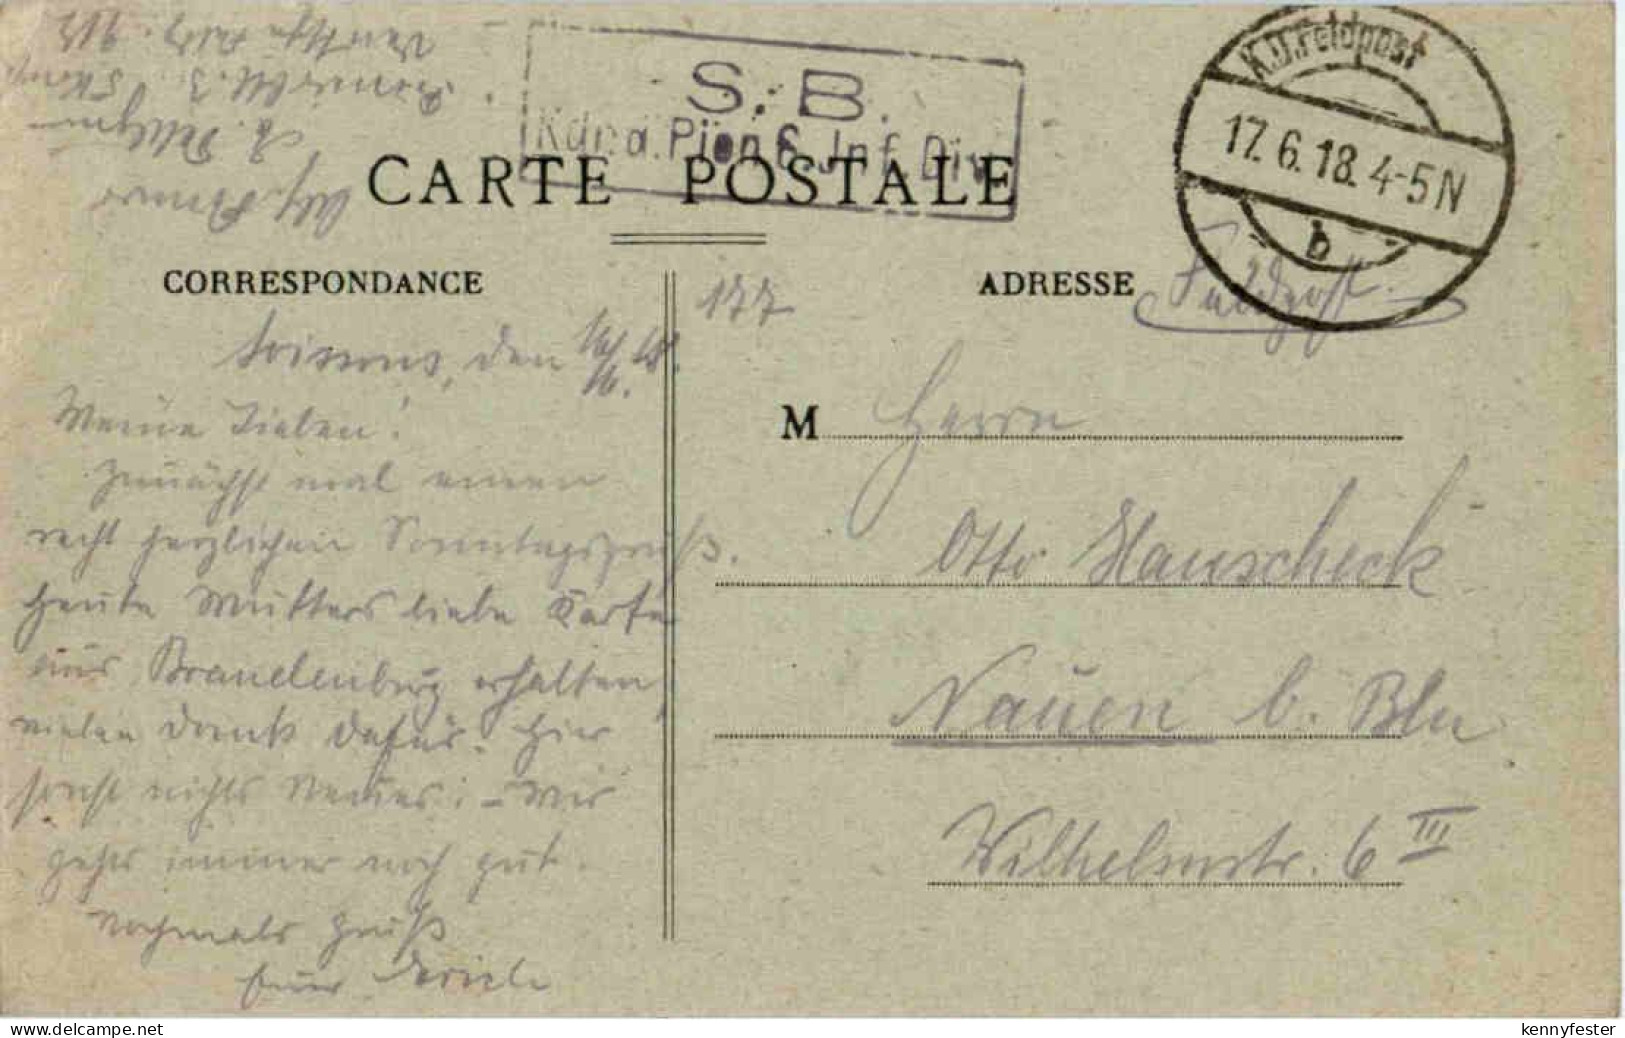 S. B.
Kdr. d. Pion. 6. Inf. Div.
K.D. Feldpost
17. 6. 18. 4-5 N
b
CARTE POSTALE
CORRESPONDANCE
ADRESSE
Feldpost.
177
Soissons, den 16/6. 18.
Meine Lieben!
Zunächst mal einen
recht herzlichen Sonntagsgruß.
Heute Mutters liebe Karte
aus Brandenburg erhalten
vielen Dank dafür. Hier
sonst nichts Neues; – Mir
gehts immer noch gut.
Nochmals Gruß
Euer
M Herrn
Otto Hauscheck
Nauen b. Bln
Wilhelmstr. 6 III
kennyfester
www.delcampe.net